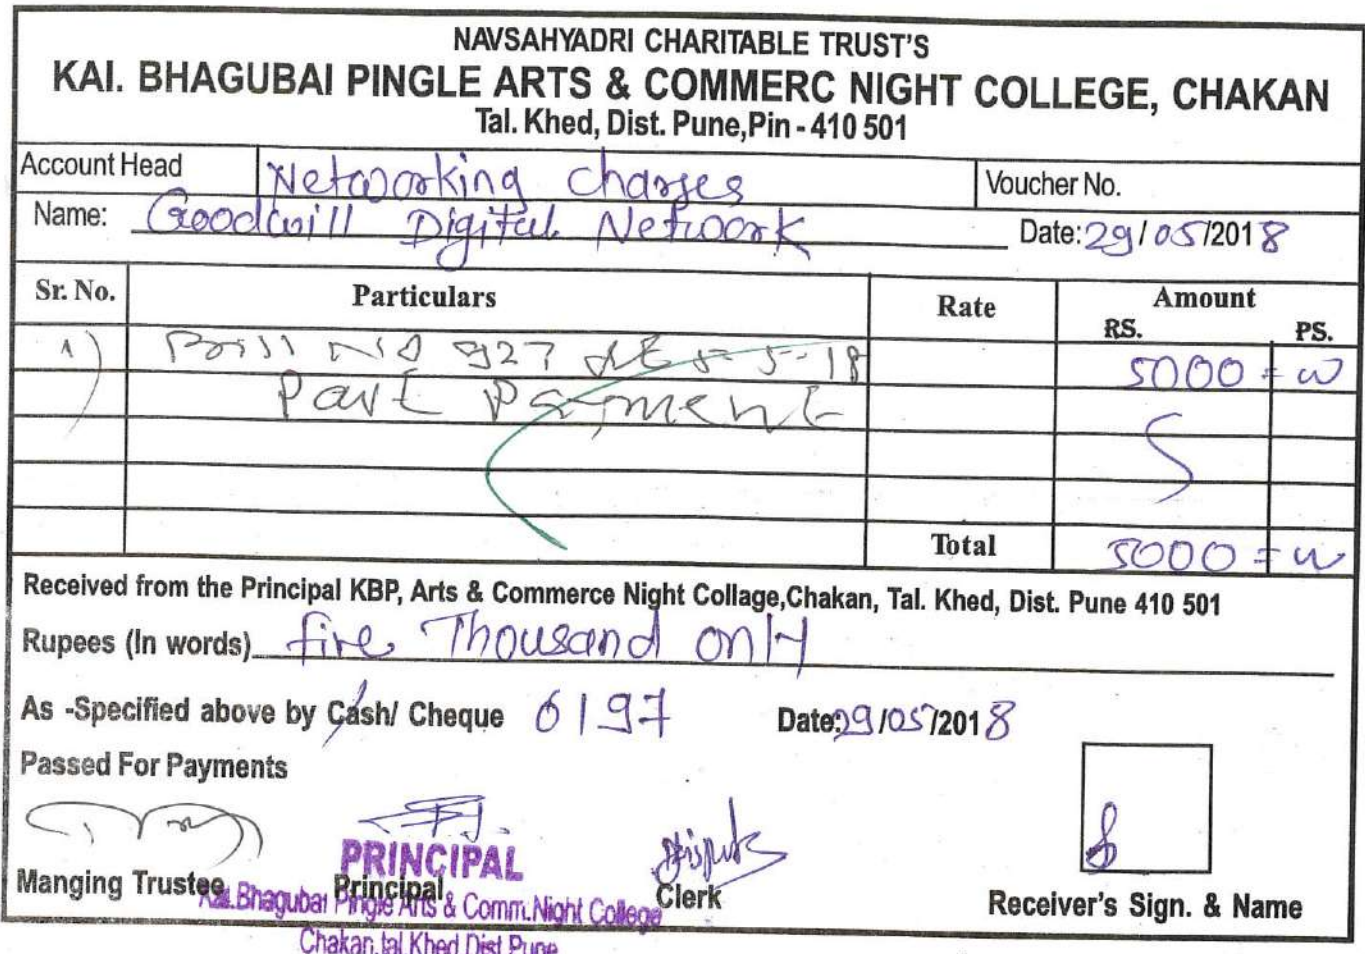 NAVSAHYADRI CHARITABLE TRUST'S
KAI. BHAGUBAI PINGLE ARTS & COMMERC NIGHT COLLEGE, CHAKAN
Tal. Khed, Dist. Pune,Pin - 410 501
Account Head Networking charges Voucher No.
Name: Goodwill Digital Network Date: 29/05/2018
Sr. No. Particulars Rate Amount
RS. PS.
1) Bill No 927 dt 5-5-18 5000 =
Part Payment
Total 5000 =
Received from the Principal KBP, Arts & Commerce Night Collage,Chakan, Tal. Khed, Dist. Pune 410 501
Rupees (In words) five Thousand only
As -Specified above by Cash/ Cheque 6197 Date: 29/05/2018
Passed For Payments
PRINCIPAL
Manging Trustee Principal Clerk Receiver's Sign. & Name
Kai.Bhagubai Pingle Arts & Comm.Night College
Chakan,tal Khed Dist Pune